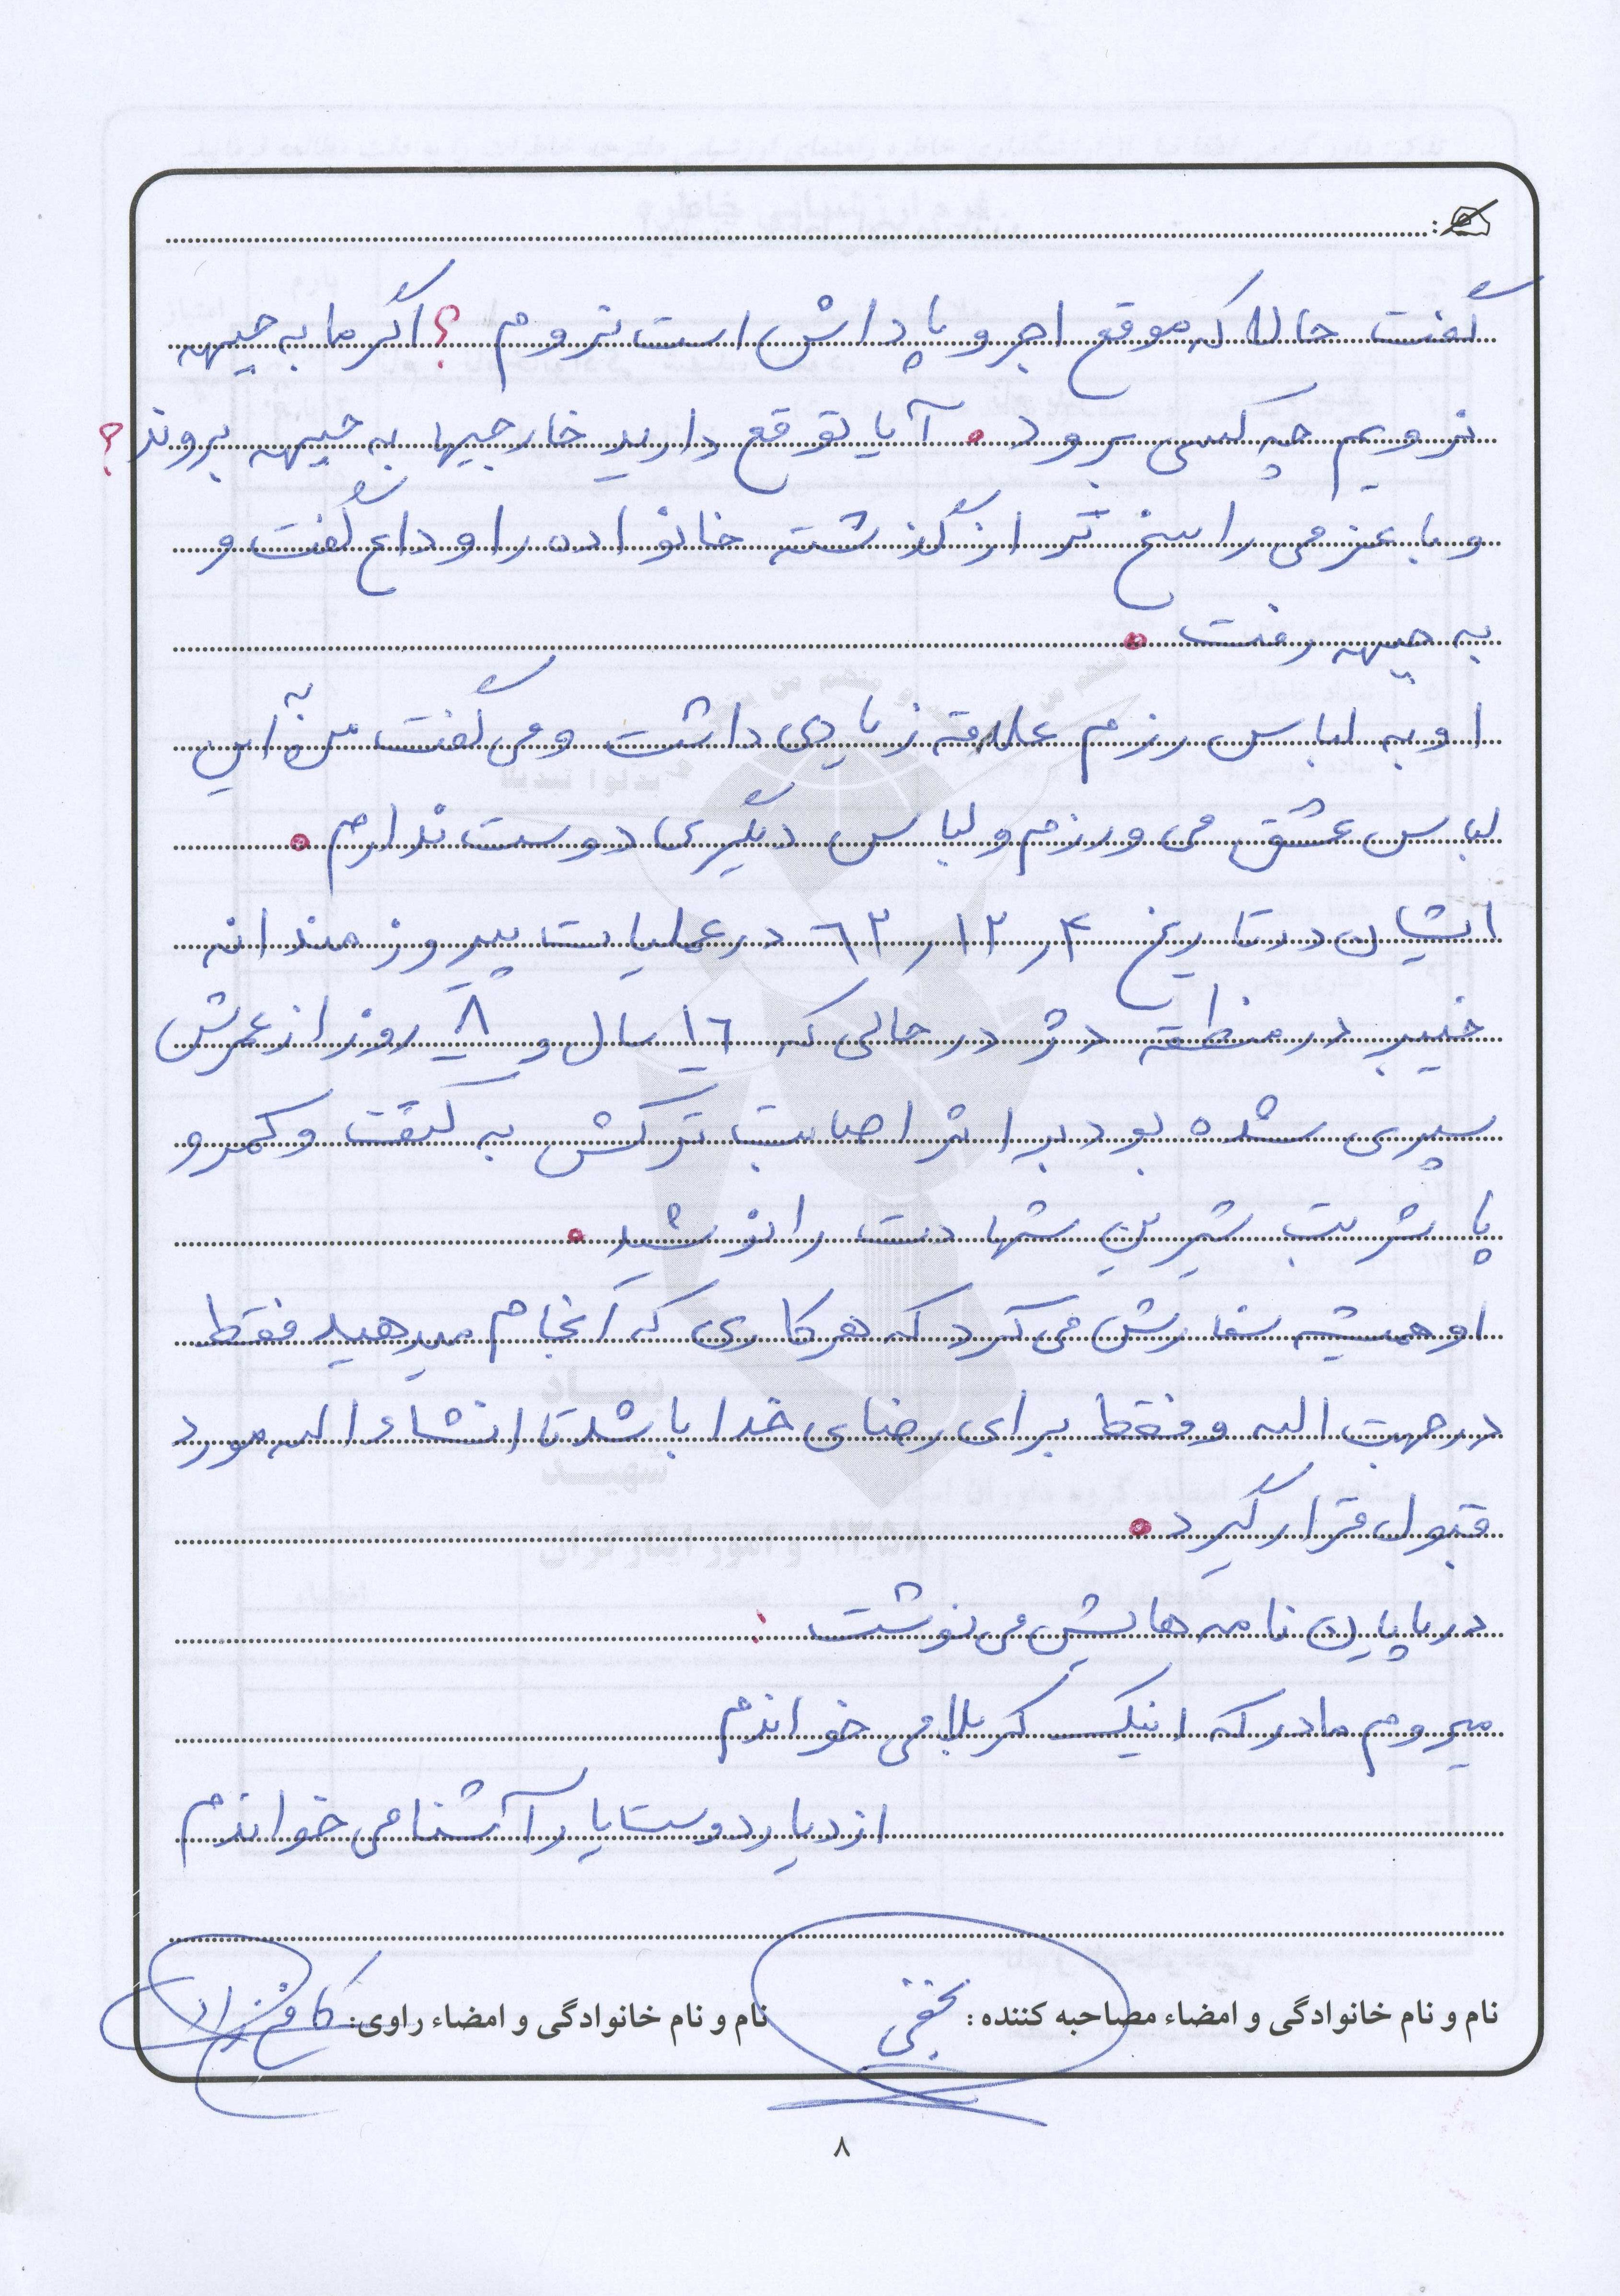 گفت حالا که موقع اجر و پاداش است نروم ؟ اگر ما به جبهه
نرویم چه کسی برود . آیا توقع دارید خارجیها به جبهه بروند ؟
و با عزمی راسخ تر از گذشته خانواده را وداع گفت و
به جبهه رفت .
او به لباس رزم علاقه زیادی داشت و می گفت من به این
لباس عشق می ورزم و لباس دیگری دوست ندارم .
ایشان در تاریخ ۴ر۱۲ر۶۲ در عملیات پیروزمندانه
خیبر در منطقه دژ در حالی که ۱۶ سال و ۸ روز از عمرش
سپری شده بود بر اثر اصابت ترکش به کتف و کمر و
پا شربت شیرین شهادت را نوشید .
او همیشه سفارش می کرد که هر کاری که انجام میدهید فقط
در جهت الله و فقط برای رضای خدا باشد تا انشاء الله مورد
قبول قرار گیرد .
در پایان نامه هایش می نوشت :
میروم مادر که اینک کربلا می خواندم
از دیار دوست یار آشنا می خواندم
نام و نام خانوادگی و امضاء مصاحبه کننده : نام و نام خانوادگی و امضاء راوی:
۸